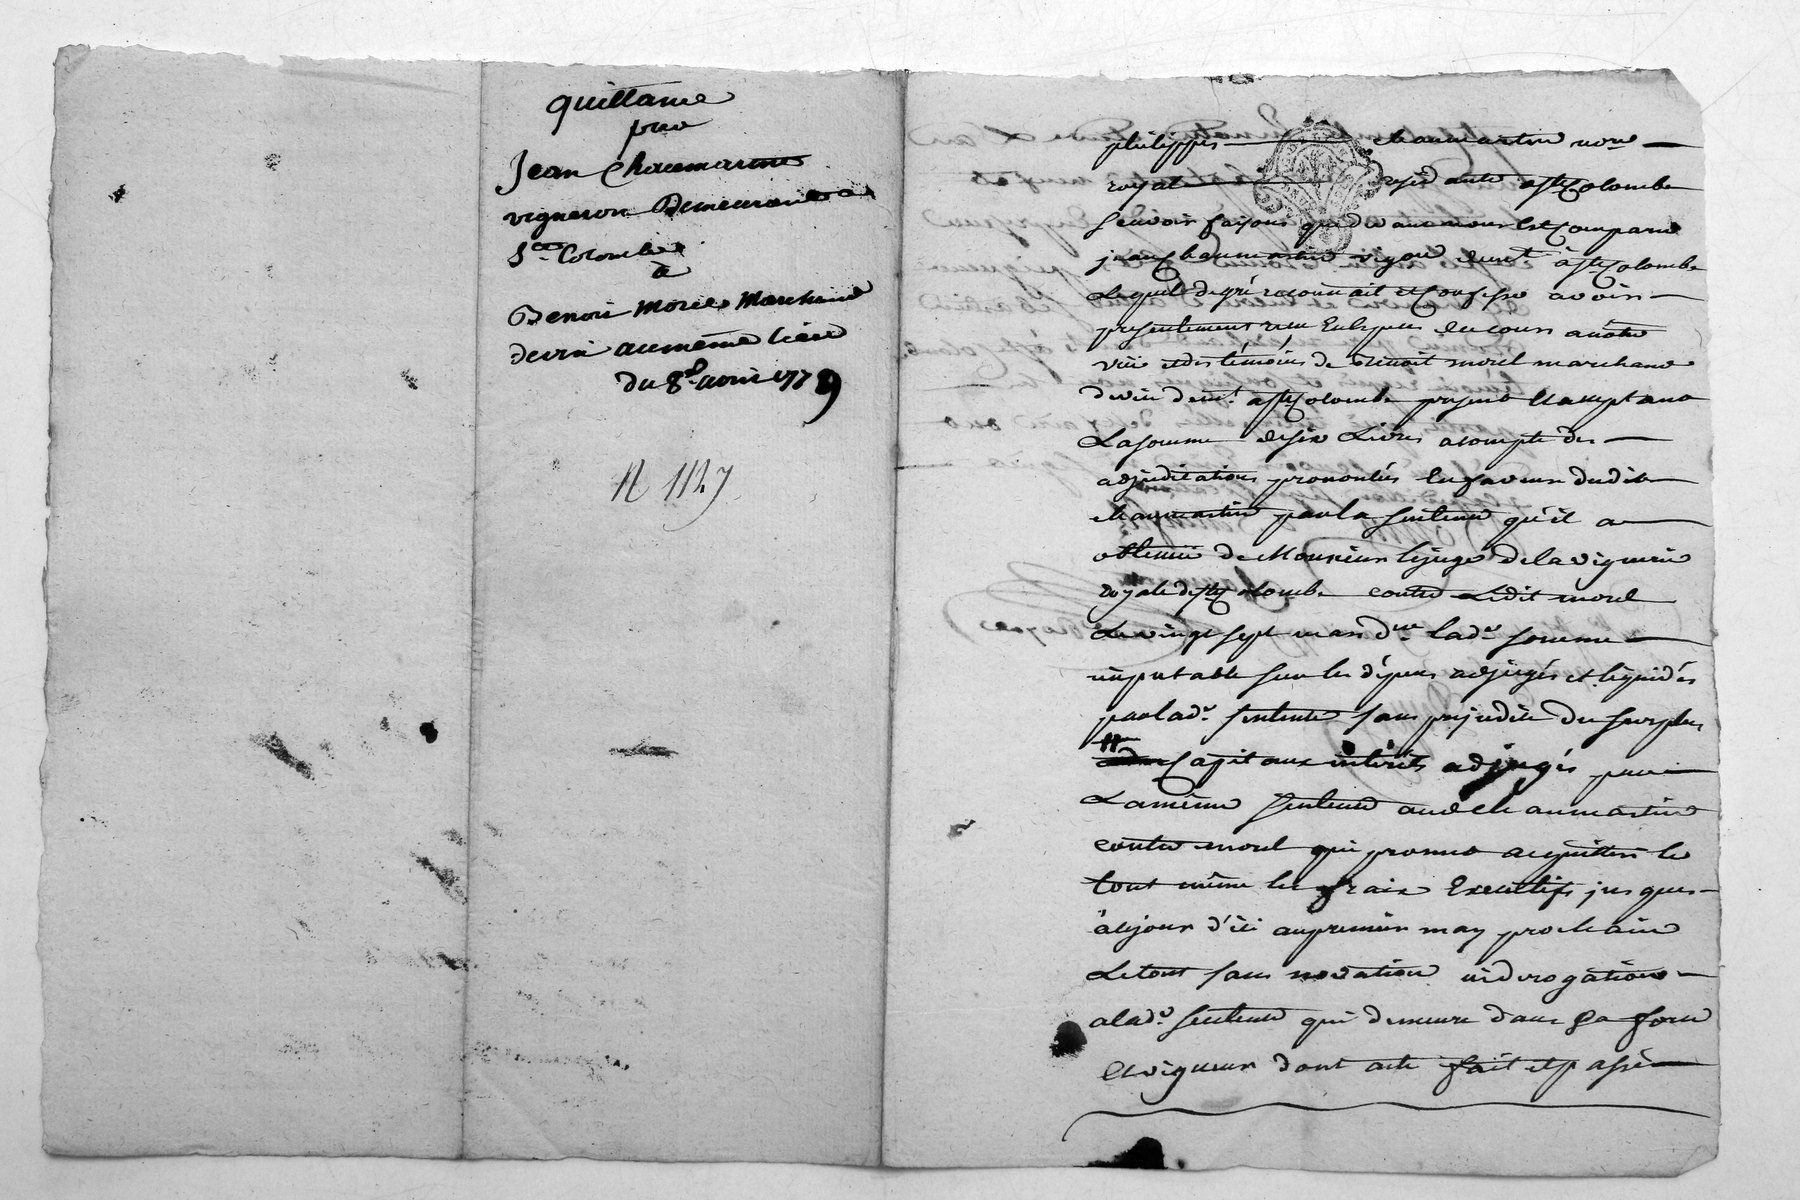 quittance
pour
Jean Chaumartin
vigneron Demeurant a
Ste Colombe
à
Benoit Morel Marchand
devin au même lieu
du 8e avril 1779
philippes chaumartin nore
royal résidant à Ste Colombe
scavoir faisons que devant nous Est Comparu
jean chaumartin vigon demt à Ste Colombe
Lequel de gré reconnait et Confesse avoir
presentement reçu En Especes du cours à nôtre
vüe et des témoins de Benoit morel marchand
devin demt a Ste Colombe present Et acceptant
La somme de six Livres acompte des
adjudications prononcées En faveur dudit
chaumartin par la sentence qu'il a
obtenüe de Monsieur le juge de la viguerie
Royale de Ste Colombe contre Ledit morel
Le vingt sept mars dr lade somme
imputable sur les dépens adjugés et liquidés
par lade sentence sans prejudice du surplus
Capitaux intérêts adjugés par
La même sentence audt chaumartin
contre morel qui promet acquitter le
tout même les fraix Executifs jusques
à ce jour d'ici au premier may prochain
Le tout sans novation ni dérogation
a lade sentence qui demeure dans sa force
Et vigueur dont acte fait et passé